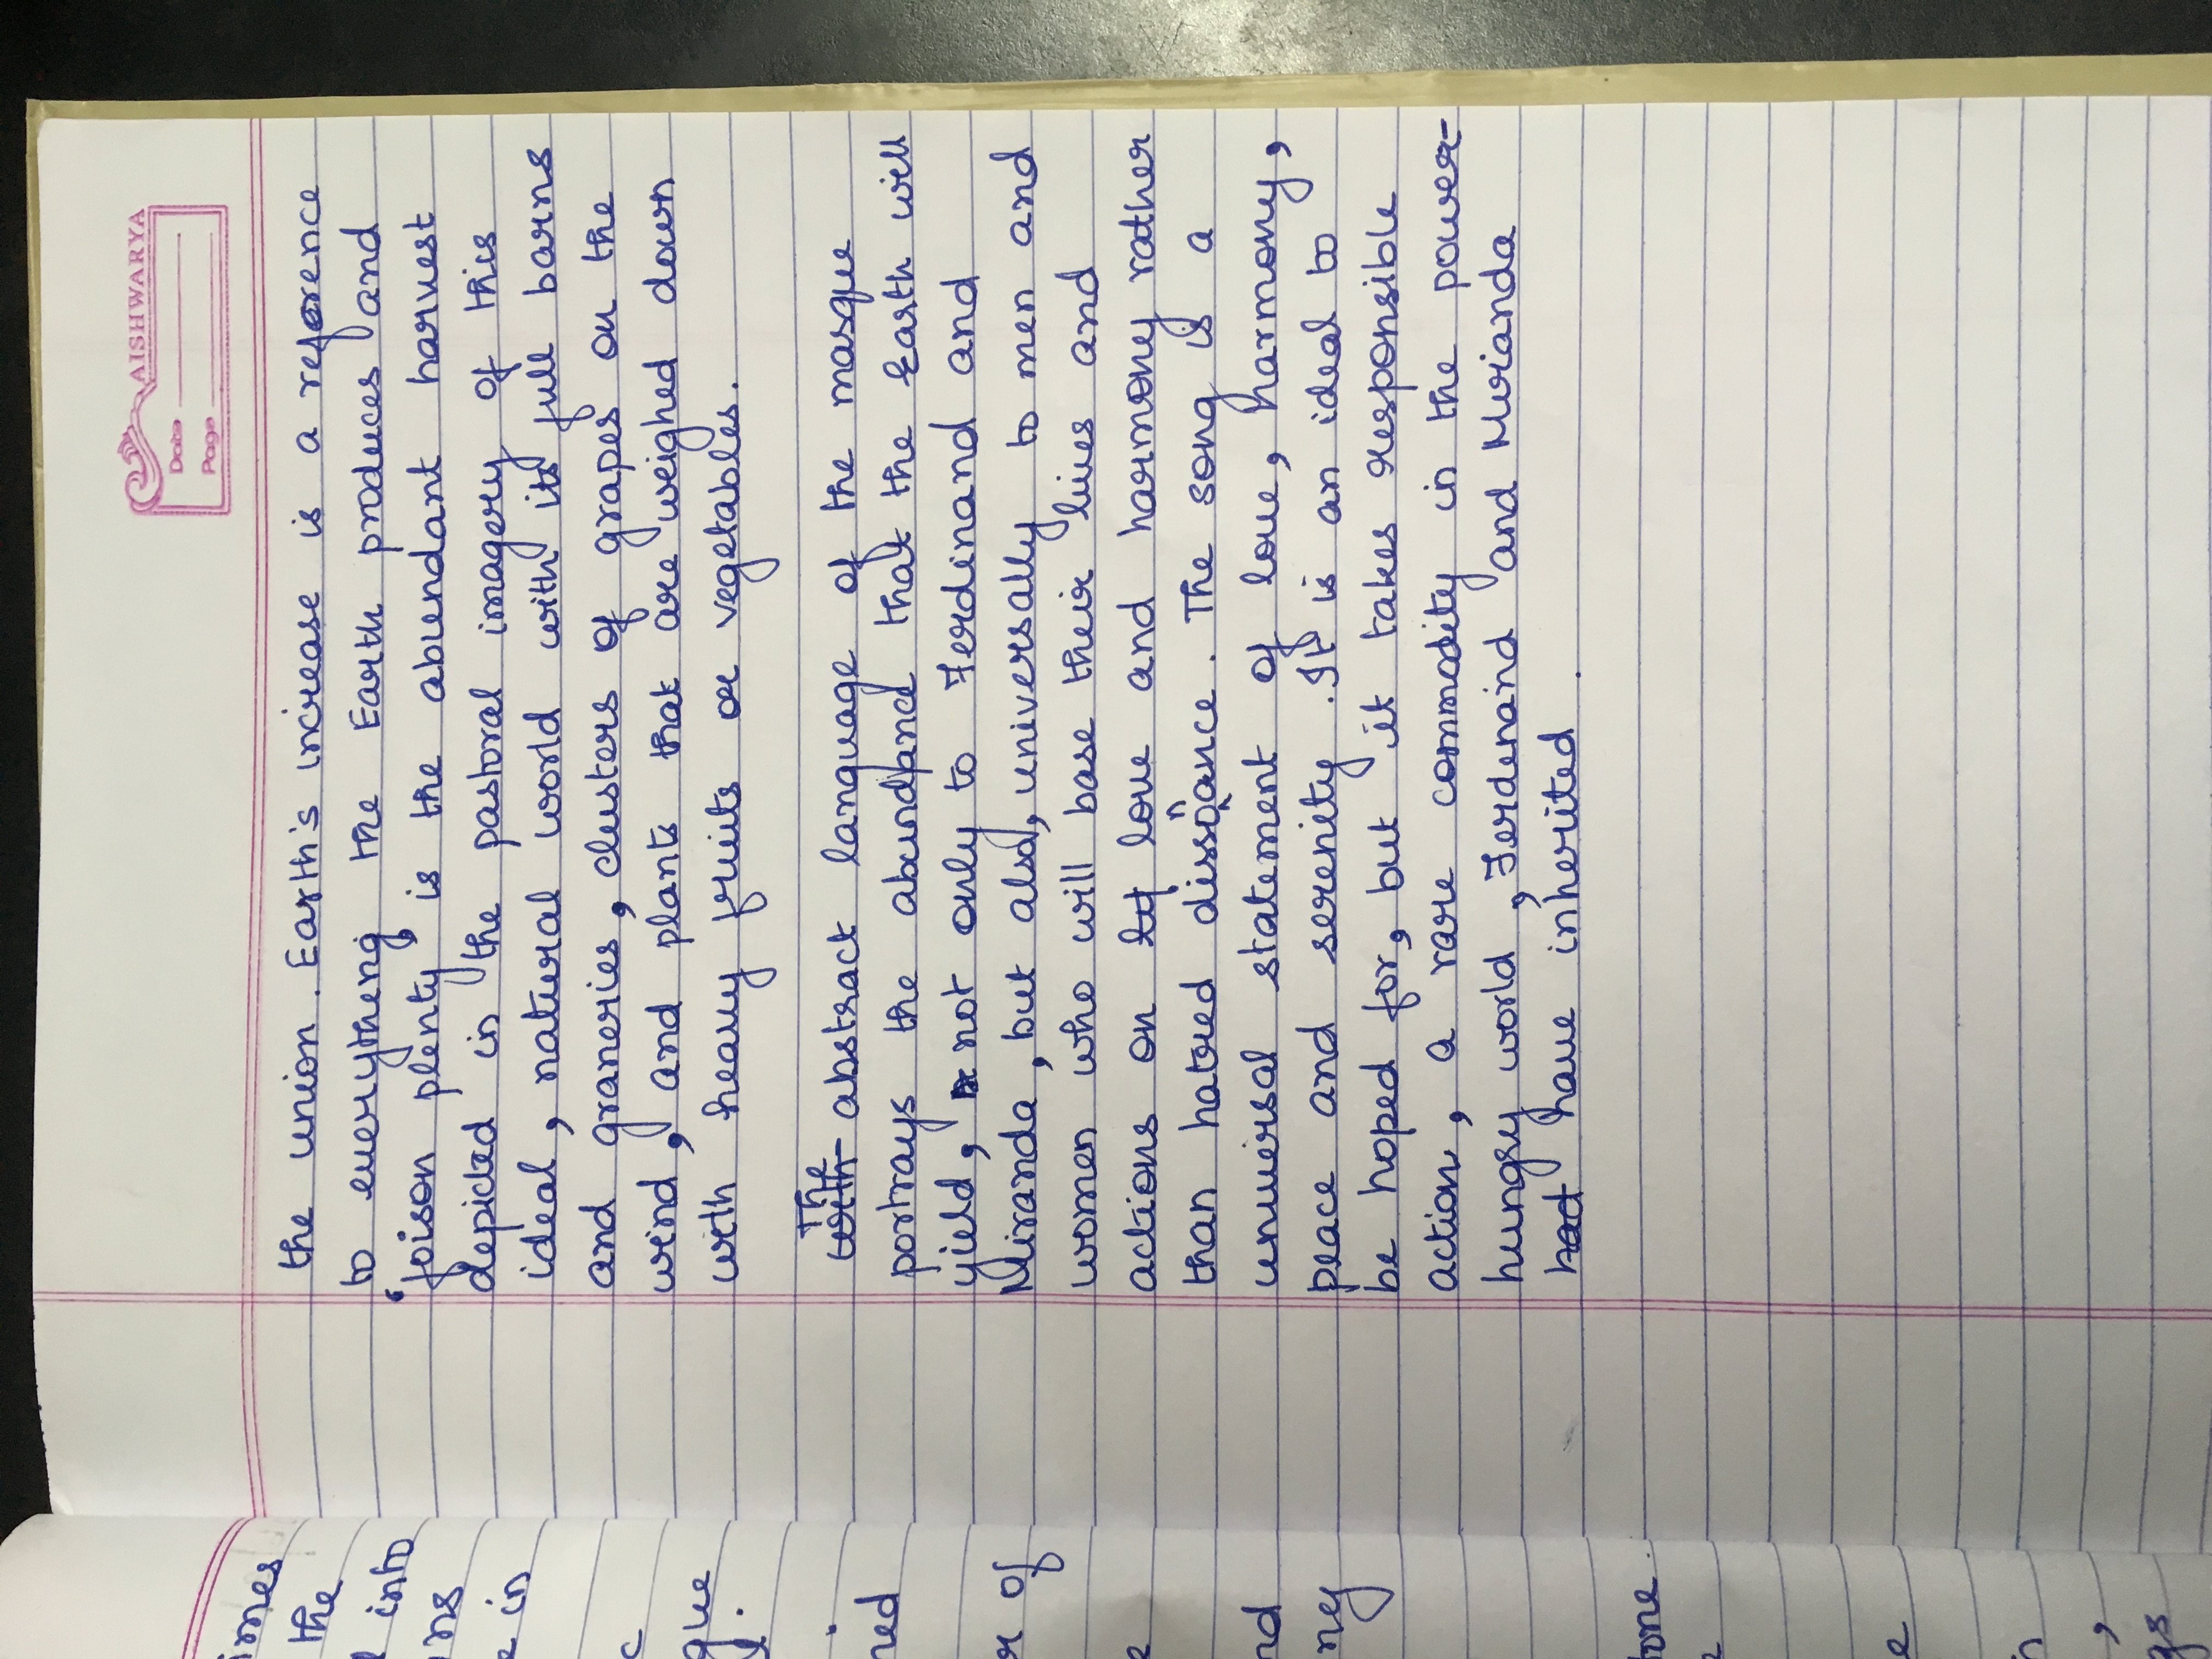 AISHWARYA
Date
Page
imes
the
into
ns
in
c
gue
ned
of
nd
ny
tone
gs
the union. Earth's increase is a reference
to everything the Earth produces and
'foison plenty' is the abundant harvest
depicted in the pastoral imagery of this
ideal, natural world with its full barns
and graneries, clusters of grapes on the
wind, and plants that are weighed down
with heavy fruits or vegetables.
The
with abstract language of the masque
portrays the abundance that the Earth will
yield, not only to Ferdinand and
Miranda, but also, universally to men and
women who will base their lives and
actions on love and harmony rather
than hatred dissonance. The song is a
universal statement of love, harmony,
peace and serenity. It is an ideal to
be hoped for, but it takes responsible
action, a rare commodity in the power-
hungry world, Ferdinand and Miranda
had have inherited.